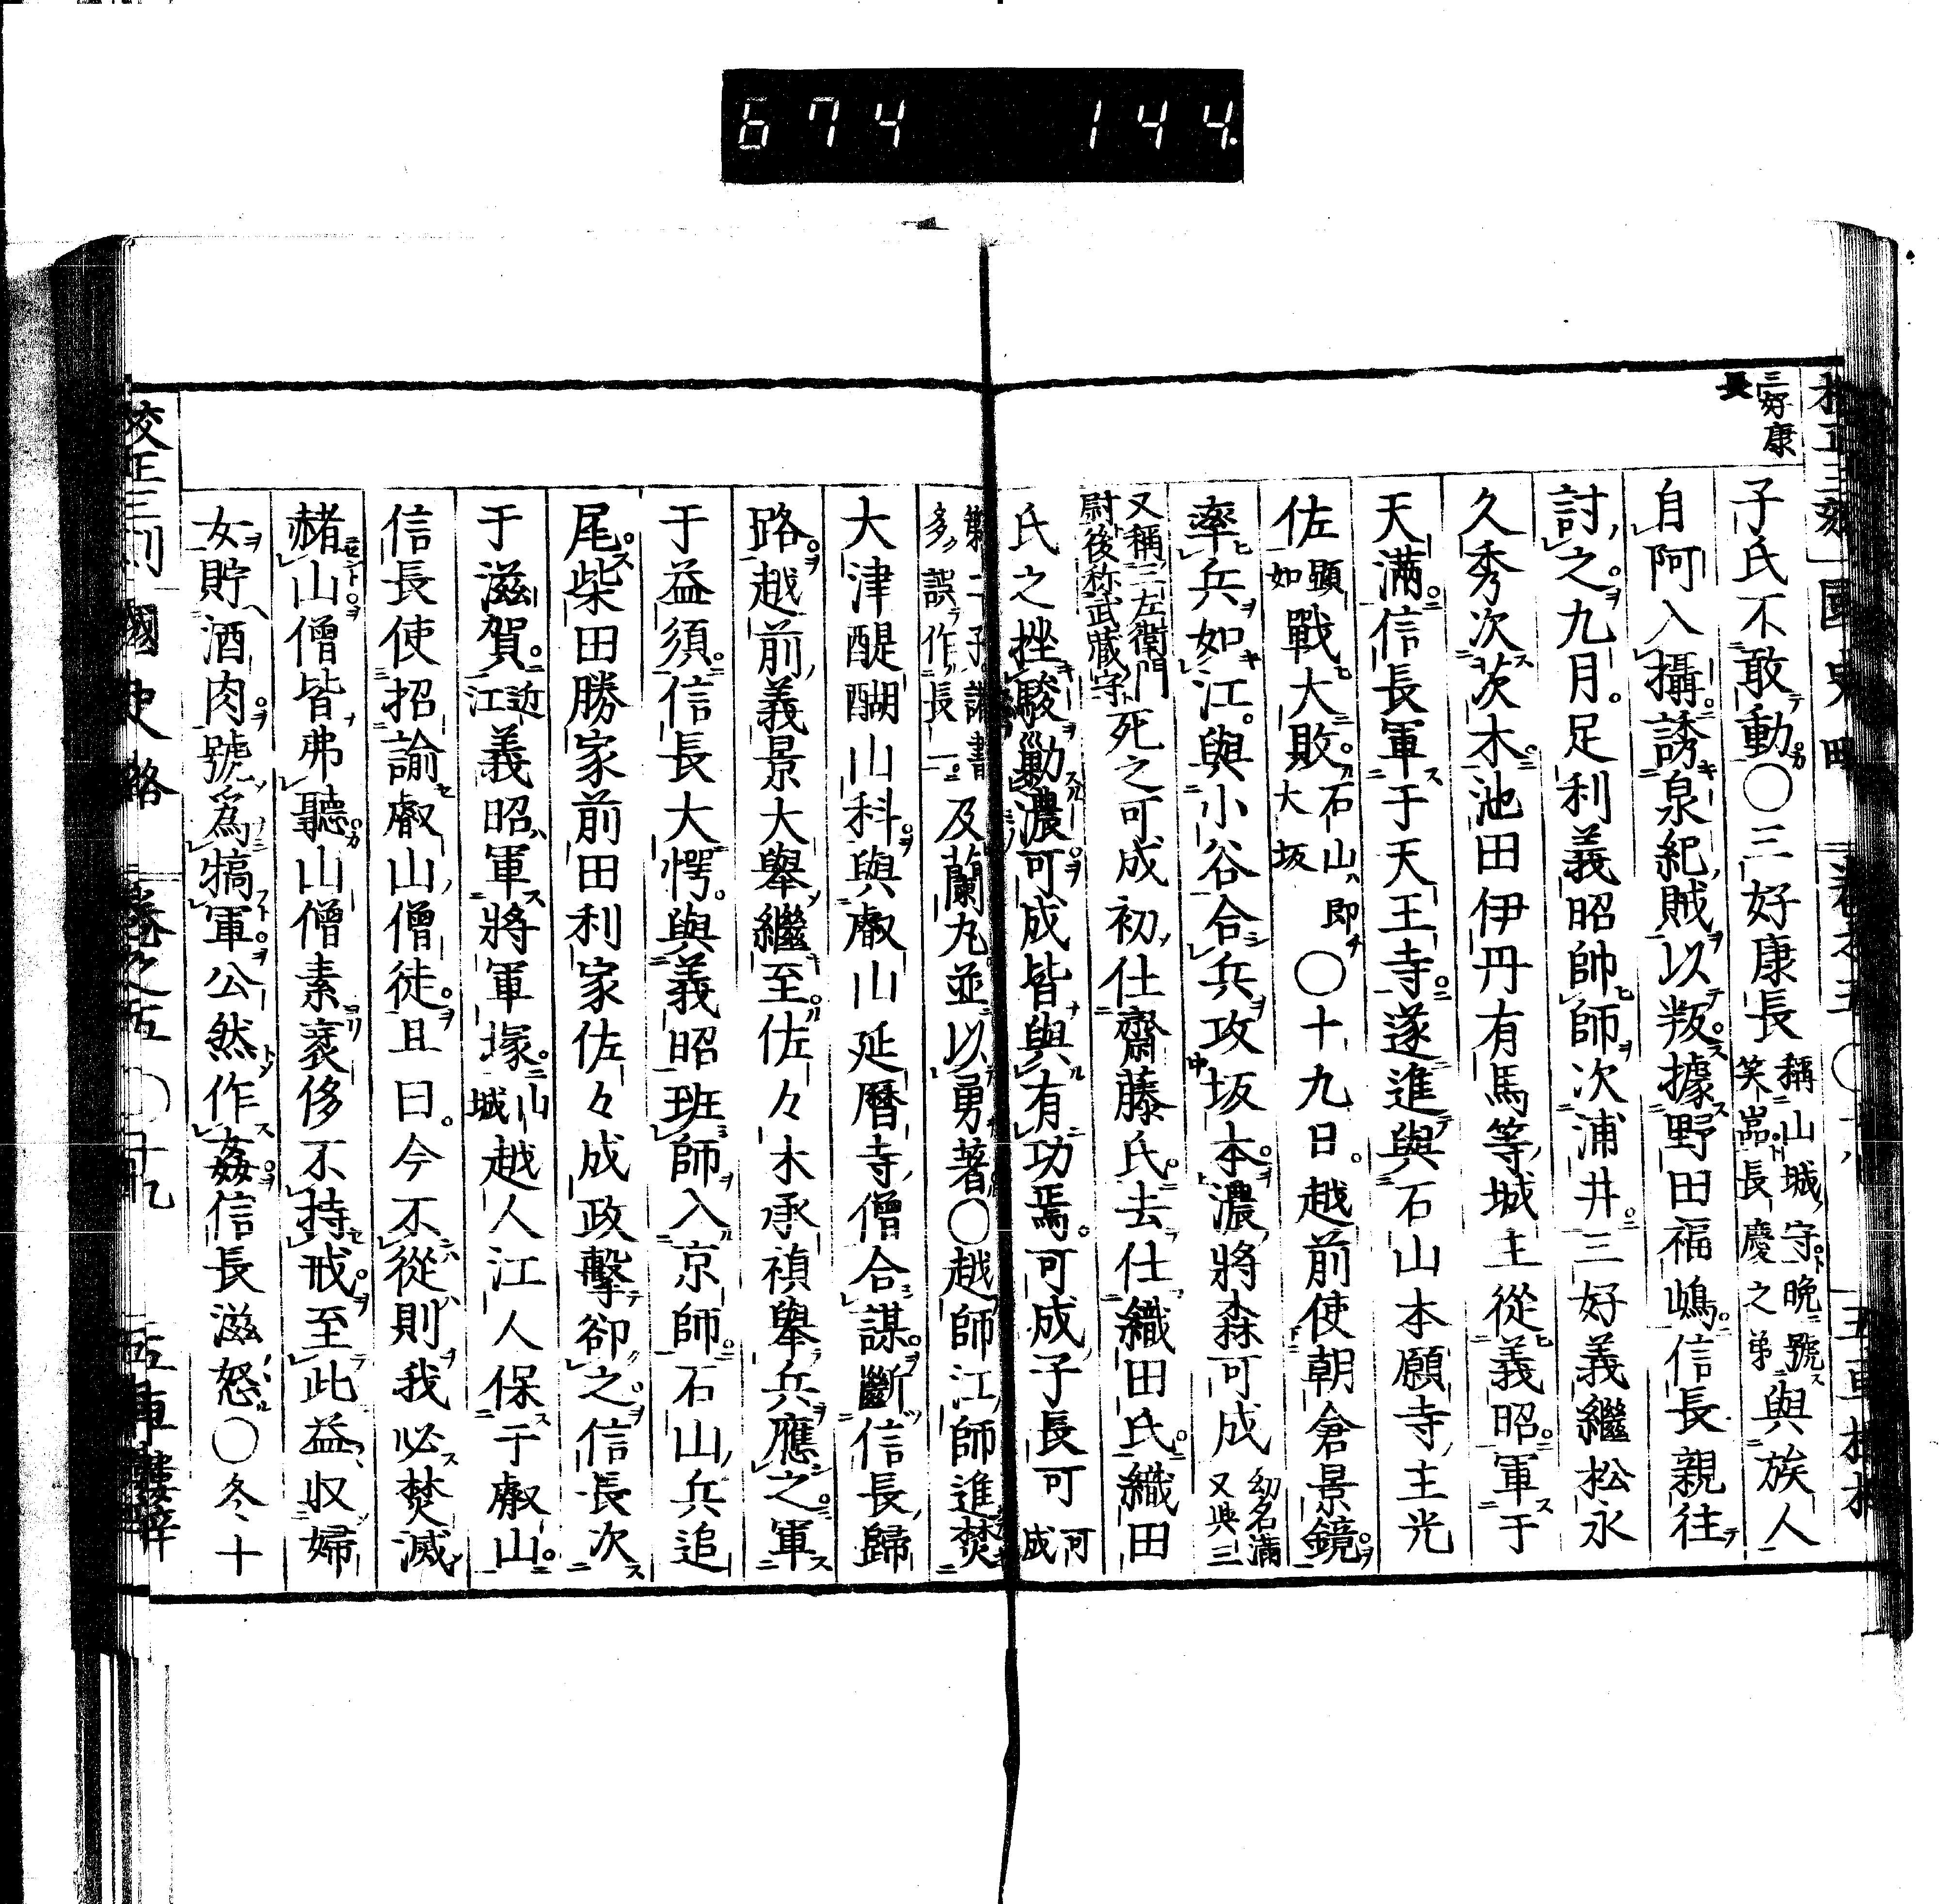 674 144.
三好康
長
子氏不敢動○三好康長稱山城守晚號笑嵓長慶之弟與族人
自阿入攝誘泉紀賊以叛據野田福嶋信長親往
討之九月足利義昭帥師次浦井三好義繼松永
久秀次茨木池田伊丹有馬等城主從義昭軍于
天滿信長軍于天王寺遂進與石山本願寺主光
佐顯如戰大敗石山即大坂○十九日越前使朝倉景鏡
率兵如江與小谷合兵攻坂本濃將森可成幼名滿又與三
又稱三左衛門尉後称武藏守死之可成初仕齋藤氏去仕織田氏織田
氏之挫駿勦濃可成皆與有功焉可成子長可可成
多誤作長一及蘭丸並以勇著○越師江師進焚
大津醍醐山科與叡山延曆寺僧合謀斷信長歸
路越前義景大舉繼至佐々木承禎舉兵應之軍
于益須信長大愕與義昭班師入京師石山兵追
尾柴田勝家前田利家佐々成政擊卻之信長次
于滋賀近江義昭軍將軍塚山城越人江人保于叡山
信長使招諭叡山僧徒且曰今不從則我必焚滅
赭山僧皆弗聽山僧素袤侈不持戒至此益収婦
女貯酒肉號爲犒軍公然作姦信長滋怒○冬十
校正三刻國史略 卷之五 ○十九 五車樓梓